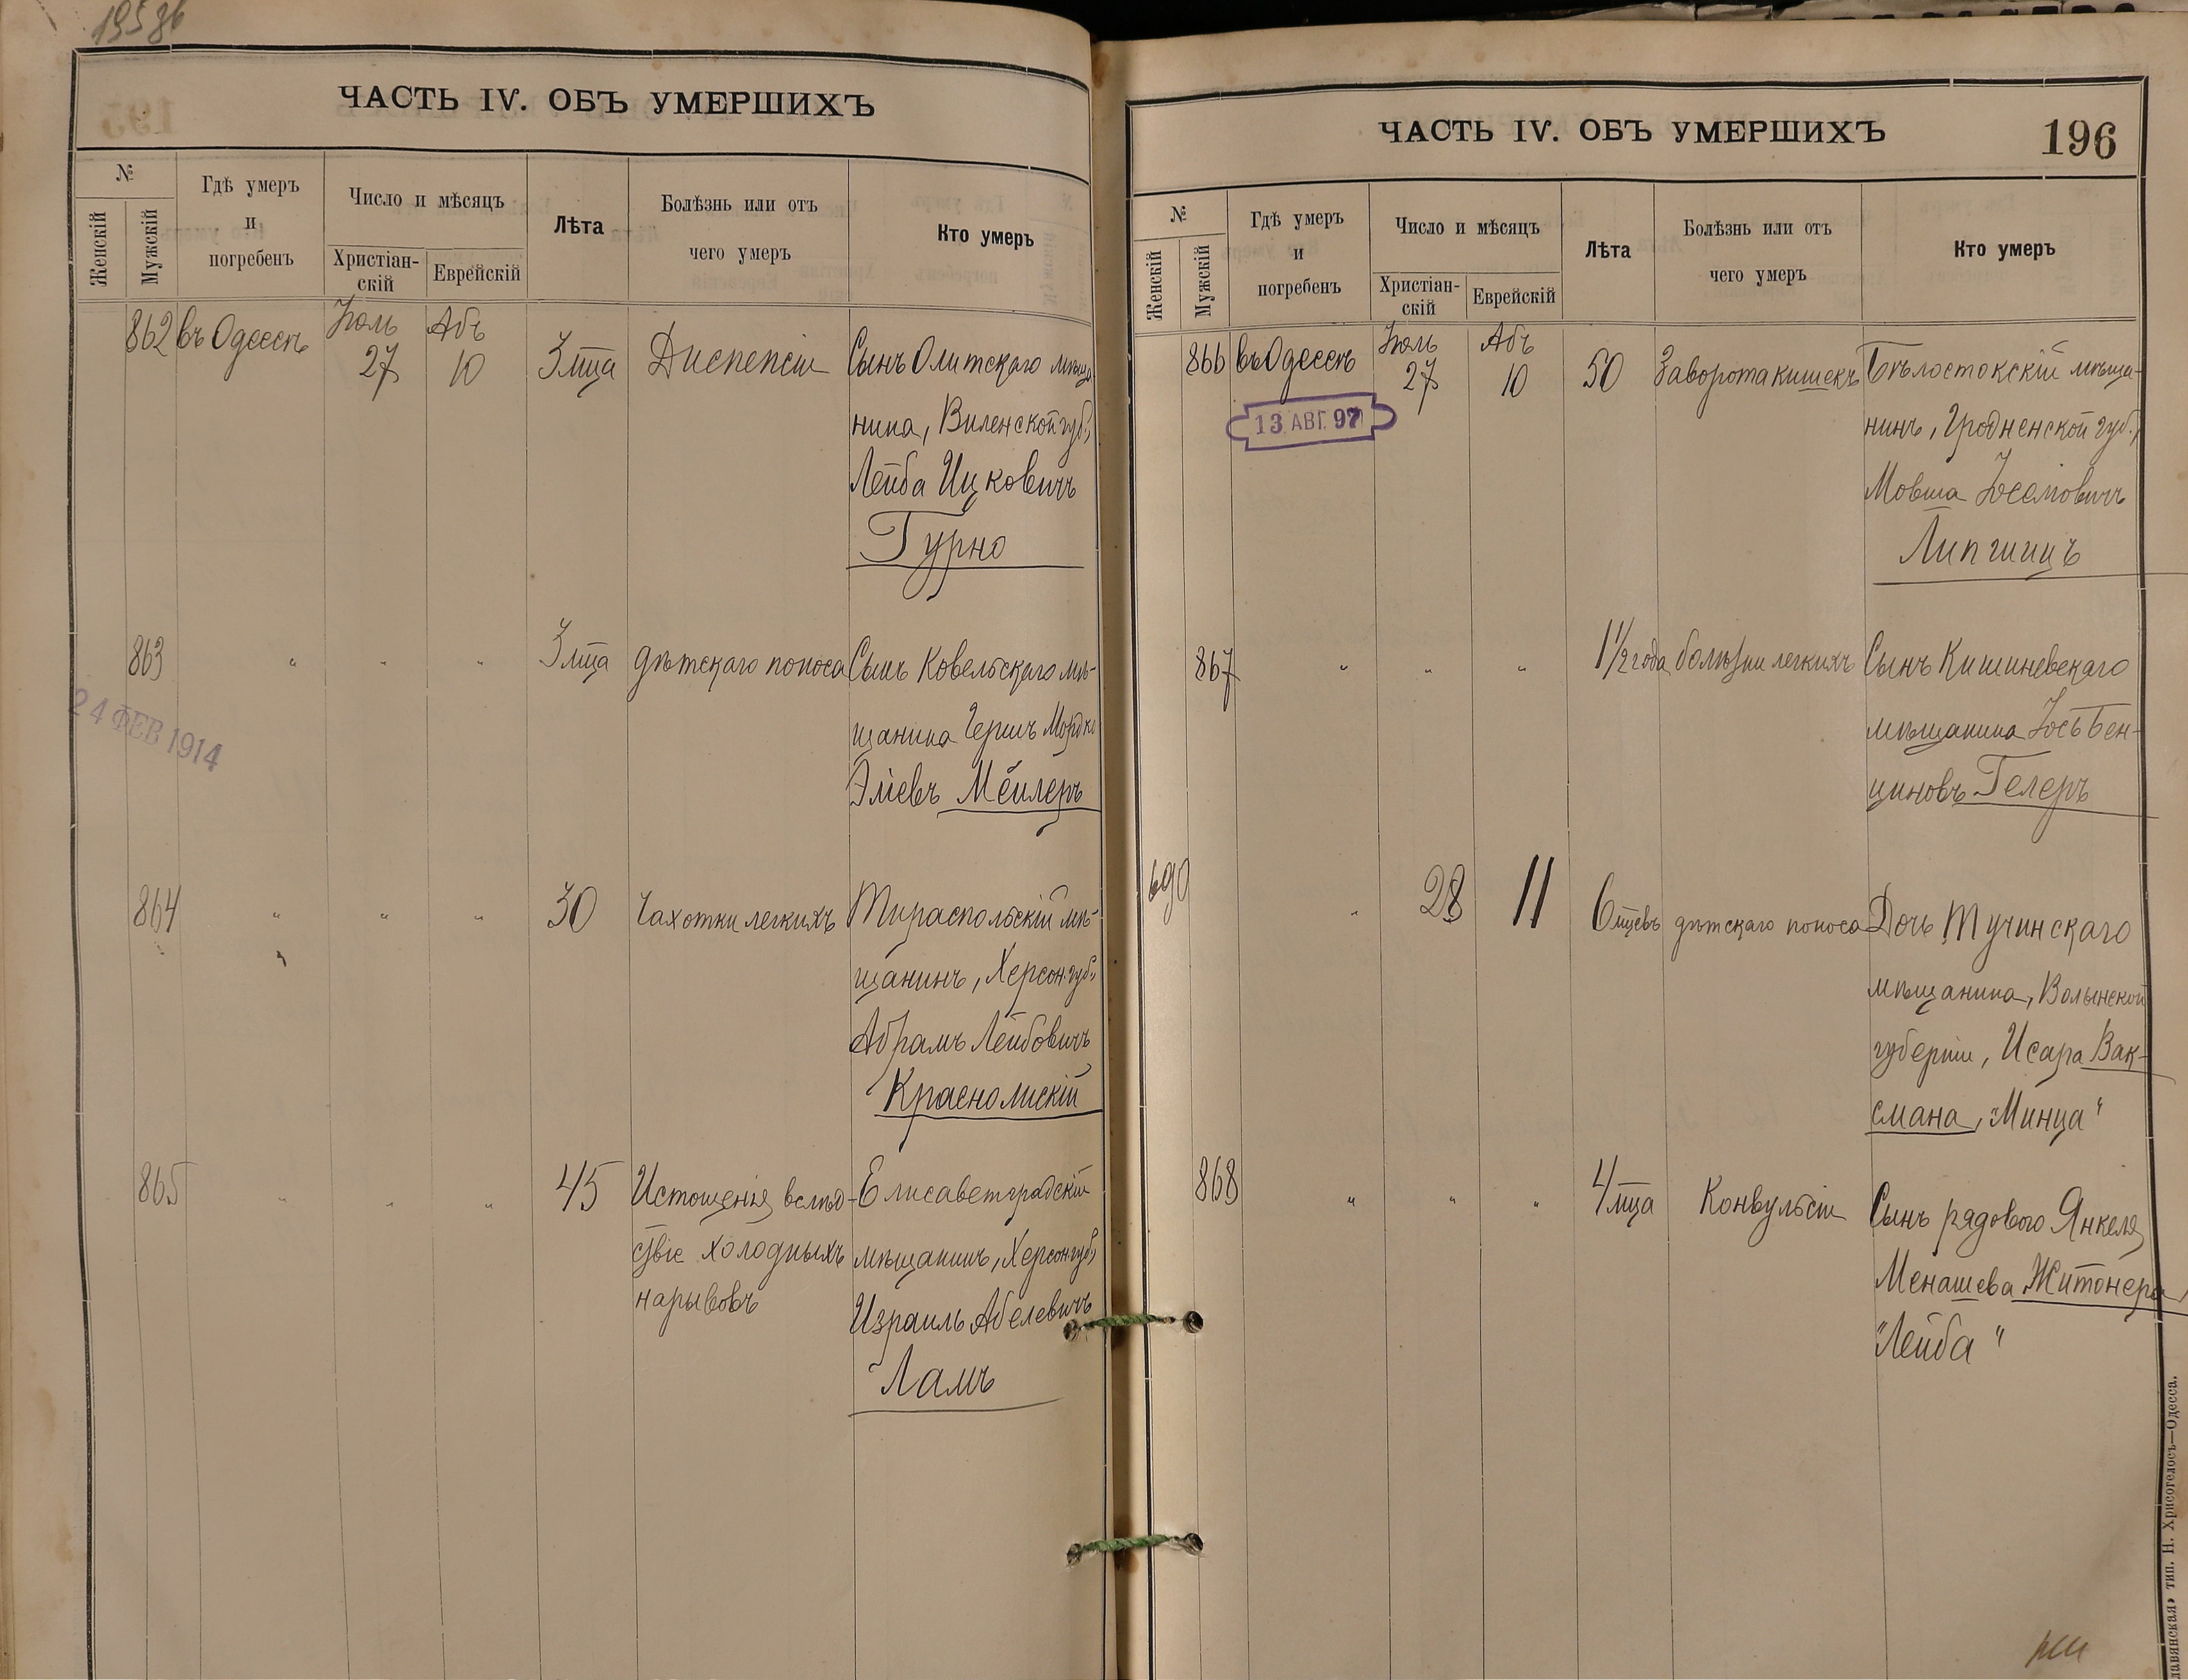 19586
ЧАСТЬ IV. ОБЪ УМЕРШИХЪ
№
Женскій
Мужскій
Гдѣ умеръ
и
погребенъ
Число и мѣсяцъ
Христіан-
скій
Еврейскій
Лѣта
Болѣзнь или отъ
чего умеръ
Кто умеръ
862 въ Одессѣ Іюль 27 Абъ 10 3 мца Диспепсіи Сынъ Олитскаго мѣща
нина, Виленской губ.,
Лейба Ицковичъ
Гурно
863 " " " 3 мца дѣтскаго поноса Сынъ Ковельскаго мѣ-
щанина Герши Мордко
Эліевъ Мейлеръ
24 ФЕВ 1914
864 " " " 30 Чахотки легкихъ Тираспольскій мѣ-
щанинъ, Херсон. губ.,
Абрамъ Лейбовичъ
865 " " " 45 Истощенія вслѣд- Елисаветградскій
ствіе холодныхъ мѣщанинъ, Херсон. губ,
нарывовъ Израиль Абелевичъ
Ламъ
ЧАСТЬ IV. ОБЪ УМЕРШИХЪ
196
№
Женскій
Мужскій
Гдѣ умеръ
и
погребенъ
Число и мѣсяцъ
Христіан-
скій
Еврейскій
Лѣта
Болѣзнь или отъ
чего умеръ
Кто умеръ
866 въ Одессѣ Іюль 27 Абъ 10 50 Заворота кишекъ Бѣлостокскій мѣща-
нинъ, Гродненской губ.,
13 АВГ. 97
Мовша Іосіовичъ
Липшицъ
867 " " " 1½ года болѣзни легкихъ Сынъ Кишиневскаго
мѣщанина Іось Бен-
ціновъ Гелеръ
690 " 28 11 6 мцевъ дѣтскаго поноса Дочь Тучинскаго
мѣщанина, Волынской
губерніи, Исара Вак-
смана, "Минца"
868 " " " 4 мца Конвульсіи Сынъ рядового Янкеля
Менашева Житонера,
"Лейба"
тип. Н. Хрисогелосъ—Одесса.